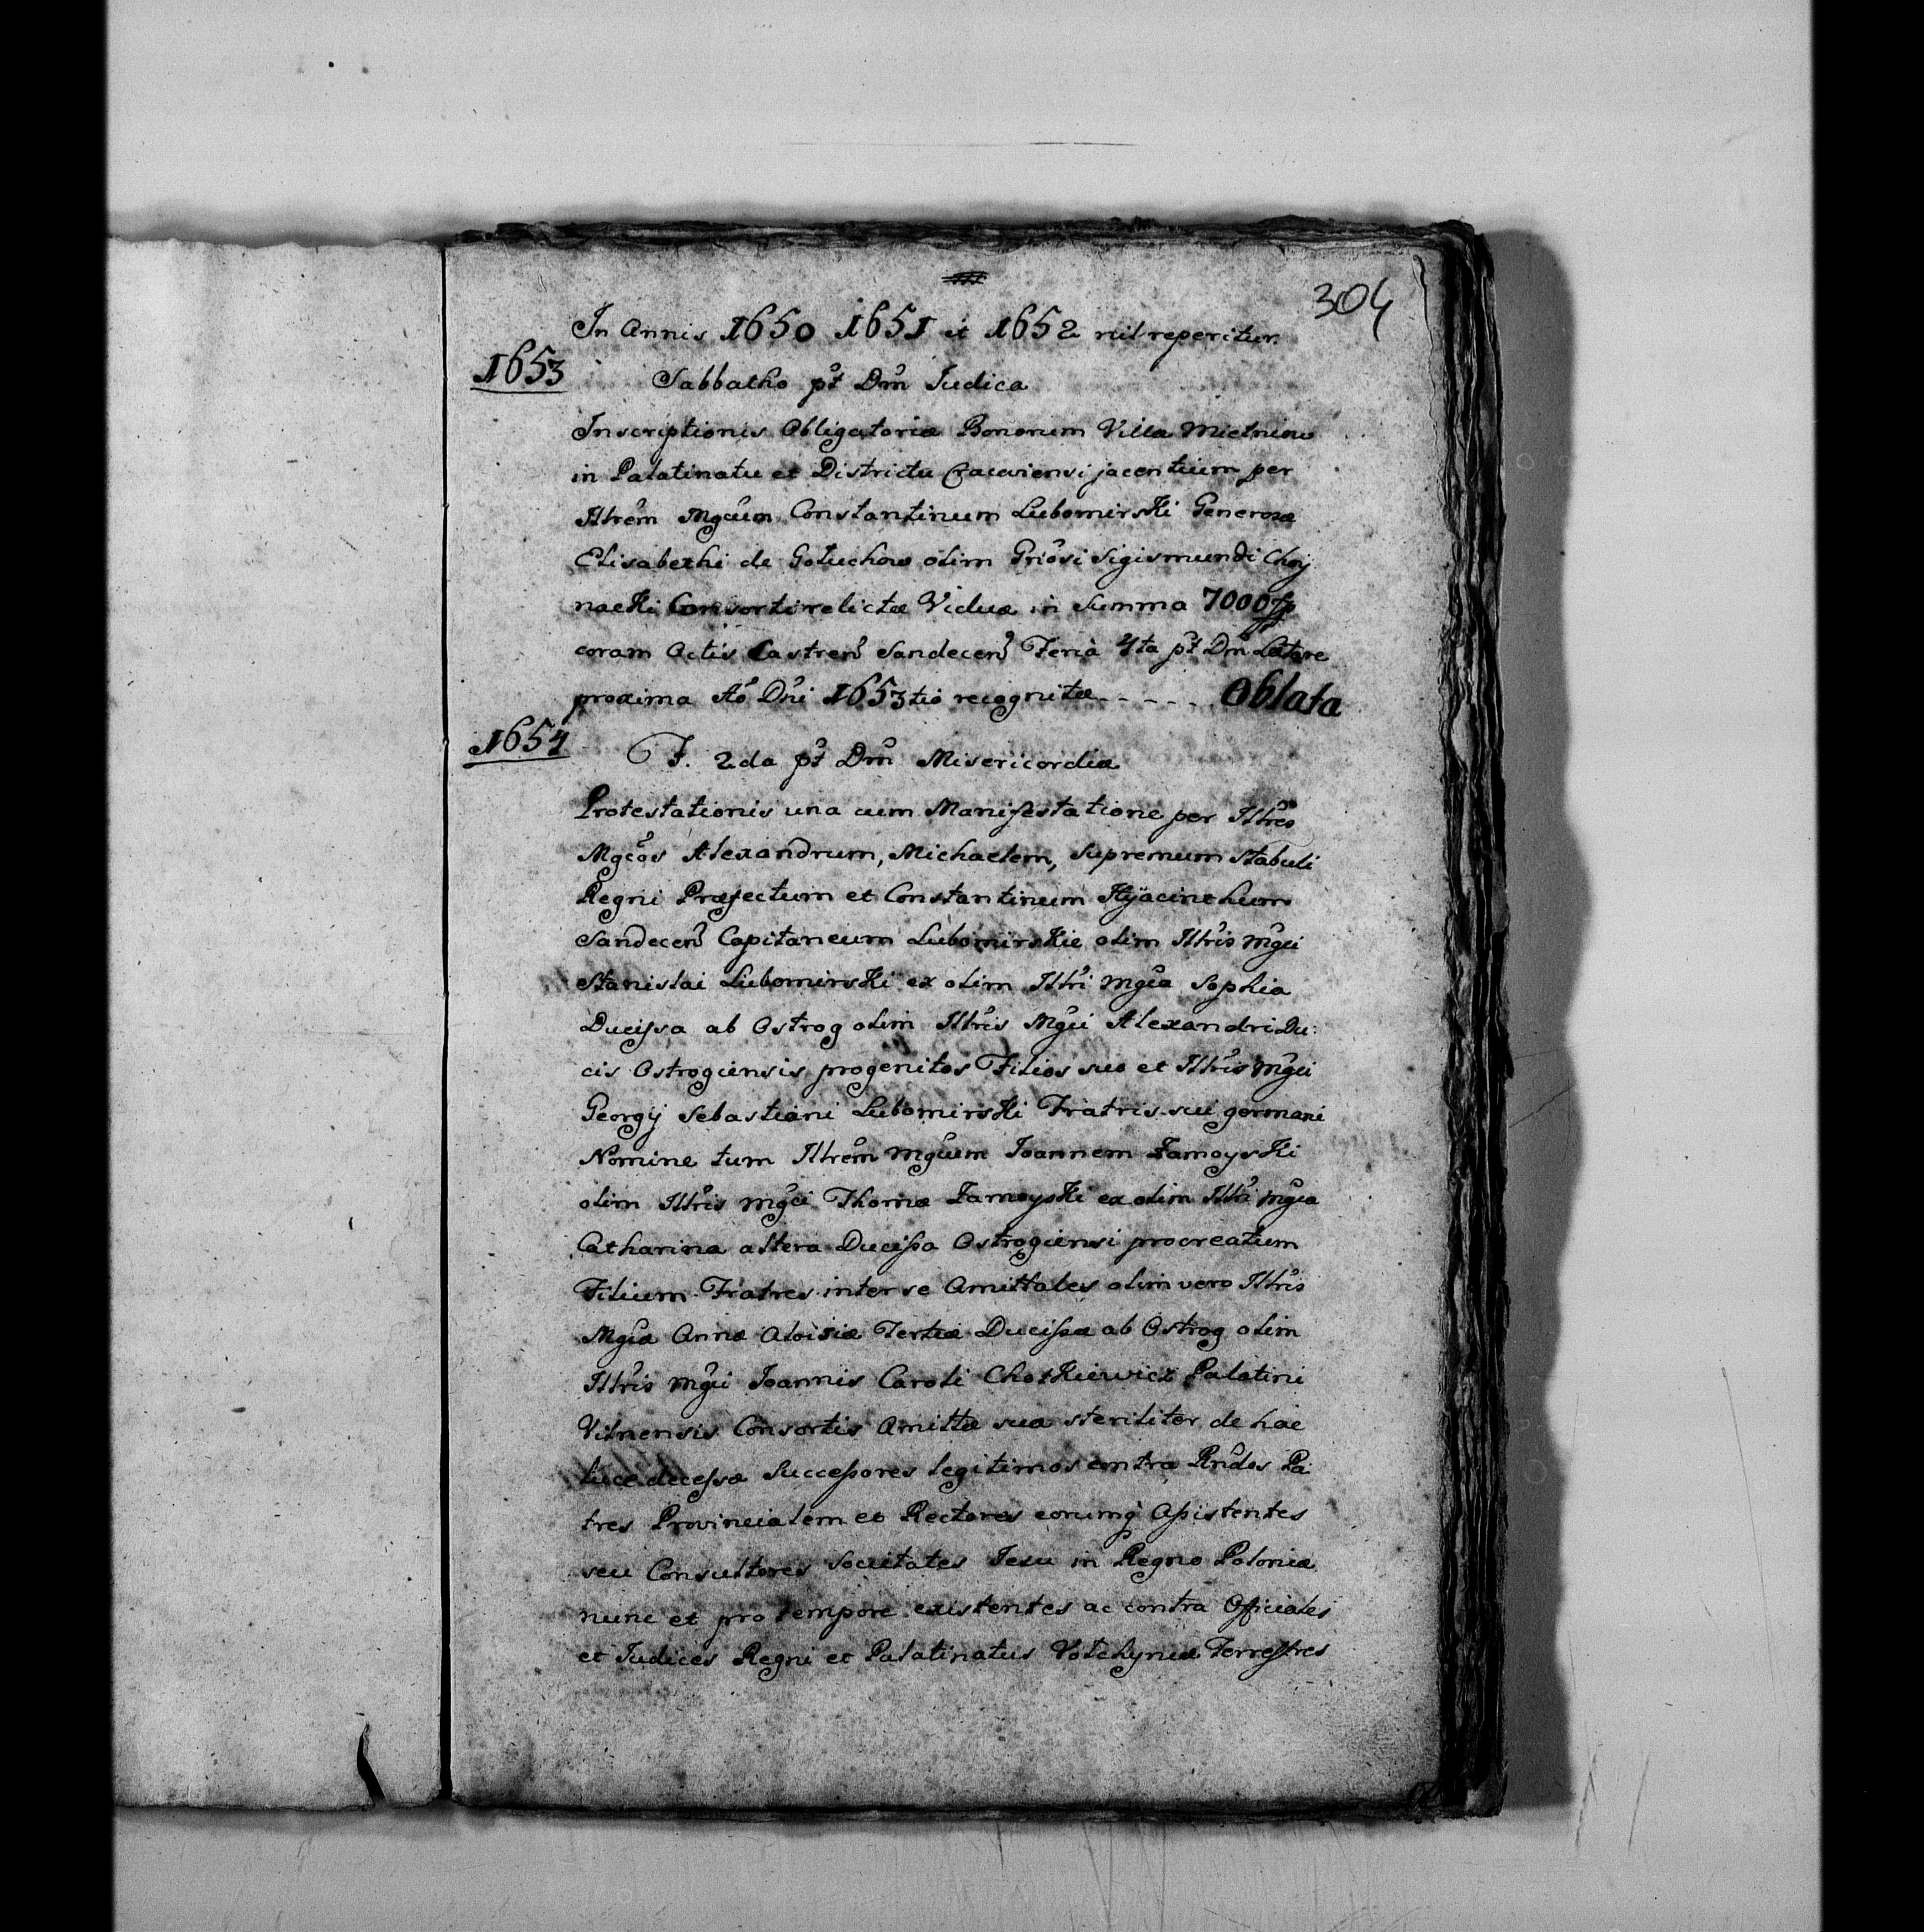 304
In Annis 1650 1651 et 1652 nil reperitur.
1653
Sabbatho pt Dnm Iudica
Inscriptionis Obligatoriæ Bonorum Villæ Mietniow
in Palatinatu et Districtu Cracoviensi jacentium per
Illrem Mgcum Constantinum Lubomirski Generosæ
Elisabethi de Goluchow olim Gnosi Sigismundi Choj
nacki Consorti relictæ Viduæ in Summa 7000 fp
coram Actis Castren Sandecen Feria 4ta pt Dnm Lætare
proxima Ao Dni 1653tio recognitæ - - - - - Oblata
1654
F. 2da pt Dnm Misericordiæ
Protestationis una cum Manifestatione per Illres
Mgcos Alexandrum, Michaelem, Supremum Stabuli
Regni Præfectum et Constantinum Hyacinthum
Sandecen Capitaneum Lubomirskie olim Illris Mgci
Stanislai Lubomirski ex olim Illri Mgca Sophia
Ducissa ab Ostrog olim Illris Mgci Alexandri Du:
cis Ostrogiensis progenitos Filios suo et Illris Mgci
Georgij Sebastiani Lubomirski Fratris sui germani
Nomine tum Illrem Mgcum Joannem Zamoyski
olim Illris Mgci Thomæ Zamoyski ex olim Illri Mgca
Catharina altera Ducissa Ostrogiensi procreatum
Filium Fratres inter se Amittales olim vero Illris
Mgcæ Annæ Aloisiæ Tertiæ Ducissæ ab Ostrog olim
Illris Mgci Joannis Caroli Chotkiewicz Palatini
Vilnensis Consortis Amittæ suæ steriliter de hac
luce decessæ Successores legitimos contra Rndos Pa
tres Provincialem et Rectores eorumq Assistentes
seu Consultores Societates Jesu in Regno Poloniæ
nunc et pro tempore existentes ac contra Officiales
et Iudices Regni et Palatinatus Volchyniæ Terrestres